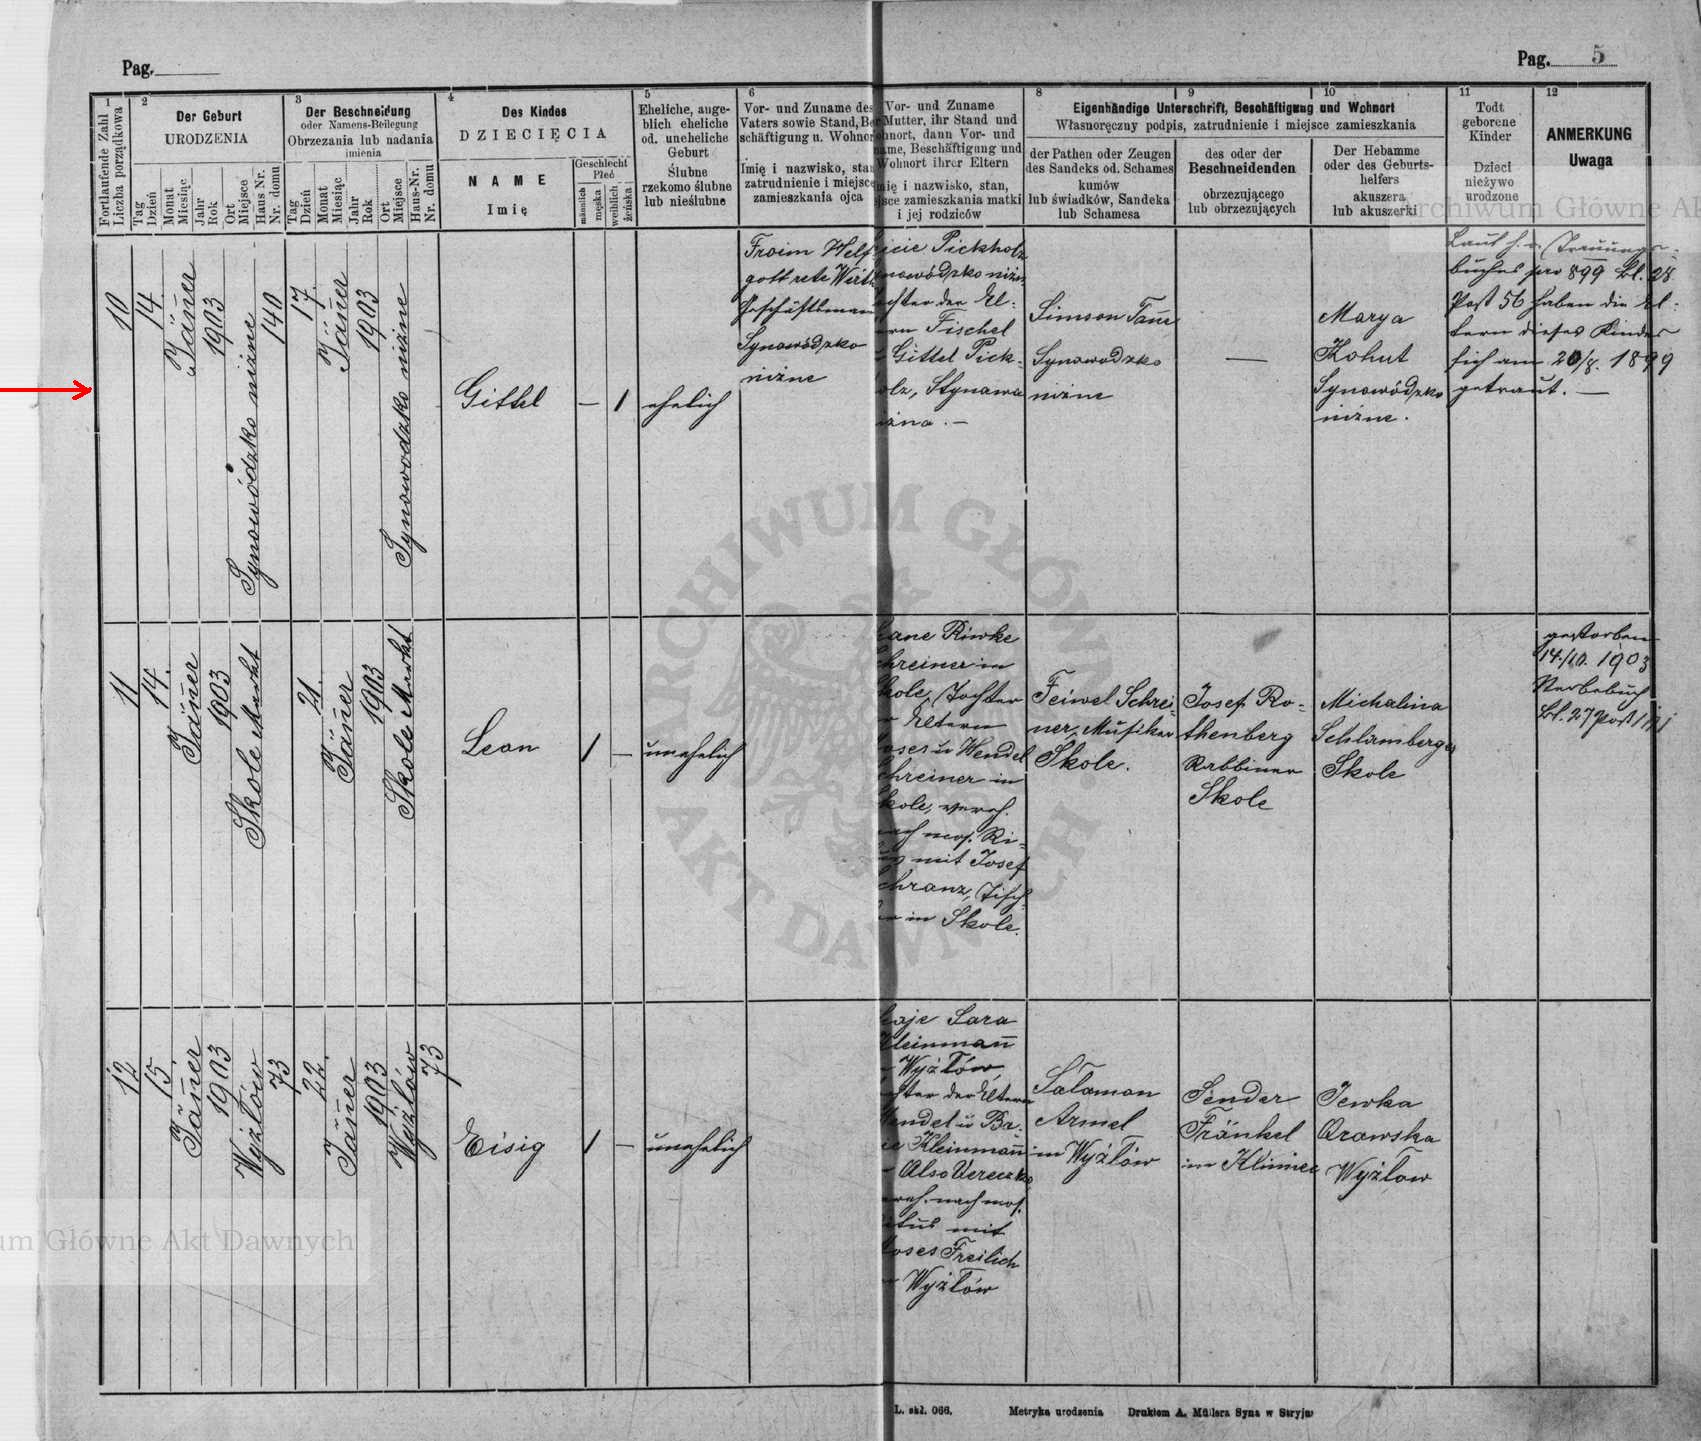 Pag.
Pag. 5
1
Fortlaufende Zahl
Liczba porządkowa
2
Der Geburt
URODZENIA
Tag
Dzień
Monat
Miesiąc
Jahr
Rok
Ort
Miejsce
Haus Nr.
Nr. domu
3
Der Beschneidung
oder Namens-Beilegung
Obrzezania lub nadania
imienia
Tag
Dzień
Monat
Miesiąc
Jahr
Rok
Ort
Miejsce
Haus-Nr.
Nr. domu
4
Des Kindes
DZIECIĘCIA
NAME
Imię
Geschlecht
Płeć
männlich
męska
weiblich
żeńska
5
Eheliche, ange-
blich eheliche
od. uneheliche
Geburt
Ślubne
rzekomo ślubne
lub nieślubne
6
Vor- und Zuname des
Vaters sowie Stand, Be
schäftigung u. Wohnor
Imię i nazwisko, stan
zatrudnienie i miejsce
zamieszkania ojca
Vor- und Zuname
Mutter, ihr Stand und
ohnort, dann Vor- und
ame, Beschäftigung und
Wohnort ihrer Eltern
mię i nazwisko, stan,
jsce zamieszkania matki
i jej rodziców
8
9
10
Eigenhändige Unterschrift, Beschäftigung und Wohnort
Własnoręczny podpis, zatrudnienie i miejsce zamieszkania
der Pathen oder Zeugen
des Sandeks od. Schames
kumów
lub świadków, Sandeka
lub Schamesa
des oder der
Beschneidenden
obrzezującego
lub obrzezujących
Der Hebamme
oder des Geburts-
helfers
akuszera
lub akuszerki
11
Todt
geborene
Kinder
Dzieci
nieżywo
urodzone
12
ANMERKUNG
Uwaga
10
14
Jäner
1903
Synowódzko niżne
140
17
Jäner
1903
Synowodzko niżne
Gittel
— 1
ehelich
Froim Helf
gott rete Wirth
Geschäftsman
Synowódzko
niżne
icie Pickholz
nowódzko niżn
chter der El-
ern Fischel
Gittel Pick-
olz, Stynawa
iżna. —
Simson Tane
Synowodzko
niżne
—
Marya
Kohut
Synowódzko
niżne.
Laut h. o. Trauungs-
buches pro 899 Bl. 28
Post 56 haben die El-
tern dieses Kindes
sich am 20/8. 1899
getraut. —
11
14.
Jäner
1903
Skole Markt
21.
Jäner
1903
Skole Markt
Leon
1 —
unehelich
hane Riwke
chreiner in
kole, Tochter
r Eltern
oses u Hendel
chreiner in
kole, vereh.
ach mos. Ri-
us mit Josef
chranz, Tisch-
er in Skole.
Feiwel Schrei-
ner, Musiker
Skole.
Josef Ro-
thenberg
Rabbiner
Skole
Michalina
Schlamberger
Skole
gestorben
14./10. 1903
Sterbebuch
Bl. 27 Post
12
15.
Jäner
1903
Wyżłów
73
22.
Jäner
1903
Wyżłów
73
Eisig
1 —
unehelich
haje Sara
Kleinman
Wyżłów,
chter der Eltern
Mendel u Be-
ie Kleinman
Also Vereczke
ereh. nach mos.
itus mit
oses Freilich
Wyżłów
Salamon
Armel
in Wyżłów
Sender
Fränkel
im Klimiec
Jewka
Orowska
Wyżłow
L. skł. 066.
Metryka urodzenia
Drukiem A. Müllera Syna w Stryju
Archiwum Główne Ak
um Główne Akt Dawnych
ARCHIWUM GŁÓWNE
AKT DAWNYCH